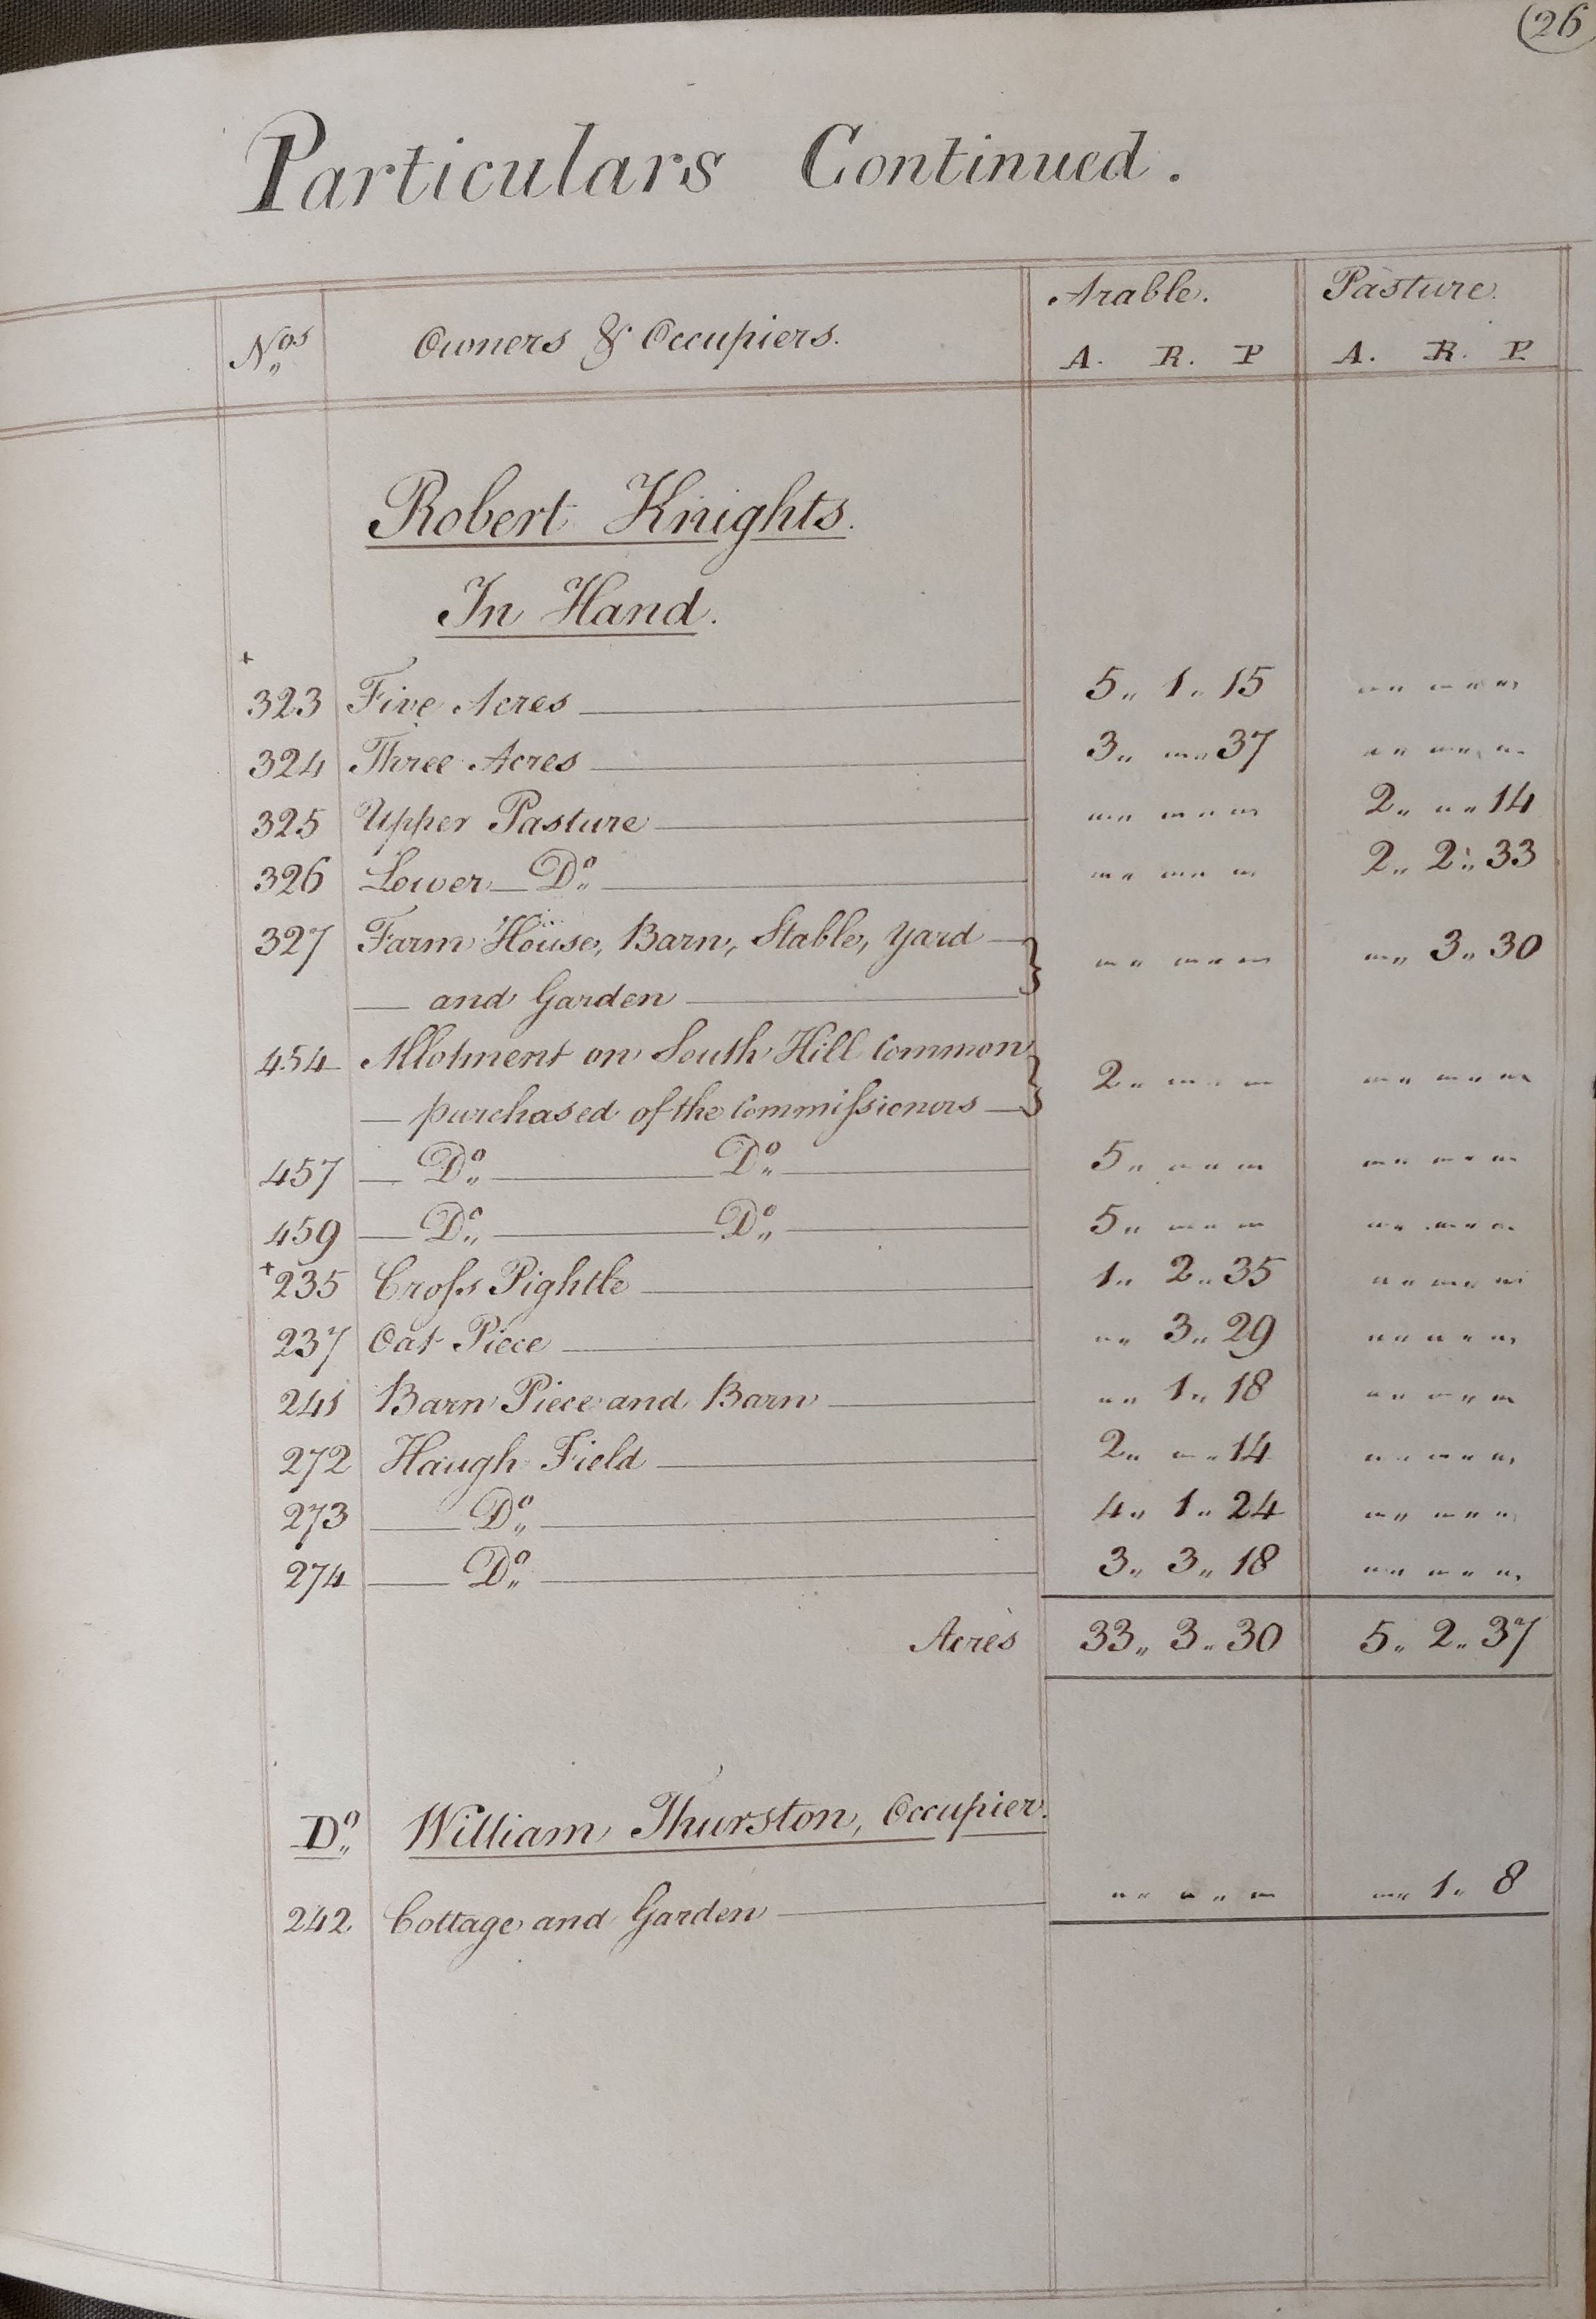 26
Particulars Continued.
Nos Owners & Occupiers. Arable. Pasture.
A. R. P A. R. P
Robert Knights.
In Hand.
+
323 Five Acres 5 „ 1 „ 15 „ „ „ „ „
324 Three Acres 3 „ „ „ 37 „ „ „ „ „
325 Upper Pasture „ „ „ „ „ 2 „ „ „ 14
326 Lower Do „ „ „ „ „ 2 „ 2 „ 33
327 Farm House, Barn, Stable, Yard } „ „ „ „ „ „ „ 3 „ 30
and Garden
454 Allotment on South Hill Common } 2 „ „ „ „ „ „ „ „ „
purchased of the Commiſsioners
457 Do Do 5 „ „ „ „ „ „ „ „ „
459 Do Do 5 „ „ „ „ „ „ „ „ „
+235 Croſs Pightle 1 „ 2 „ 35 „ „ „ „ „
237 Oat Piece „ „ 3 „ 29 „ „ „ „ „
241 Barn Piece and Barn „ „ 1 „ 18 „ „ „ „ „
272 Haugh Field 2 „ „ „ 14 „ „ „ „ „
273 Do 4 „ 1 „ 24 „ „ „ „ „
274 Do 3 „ 3 „ 18 „ „ „ „ „
Acres 33 „ 3 „ 30 5 „ 2 „ 37
Do William Thurston, Occupier.
242 Cottage and Garden „ „ „ „ „ „ „ 1 „ 8